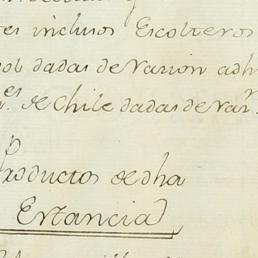 inclusos Escolteros
dadas de Varion adh
es de Chile dadas de Var
Productos de dha
Estancia